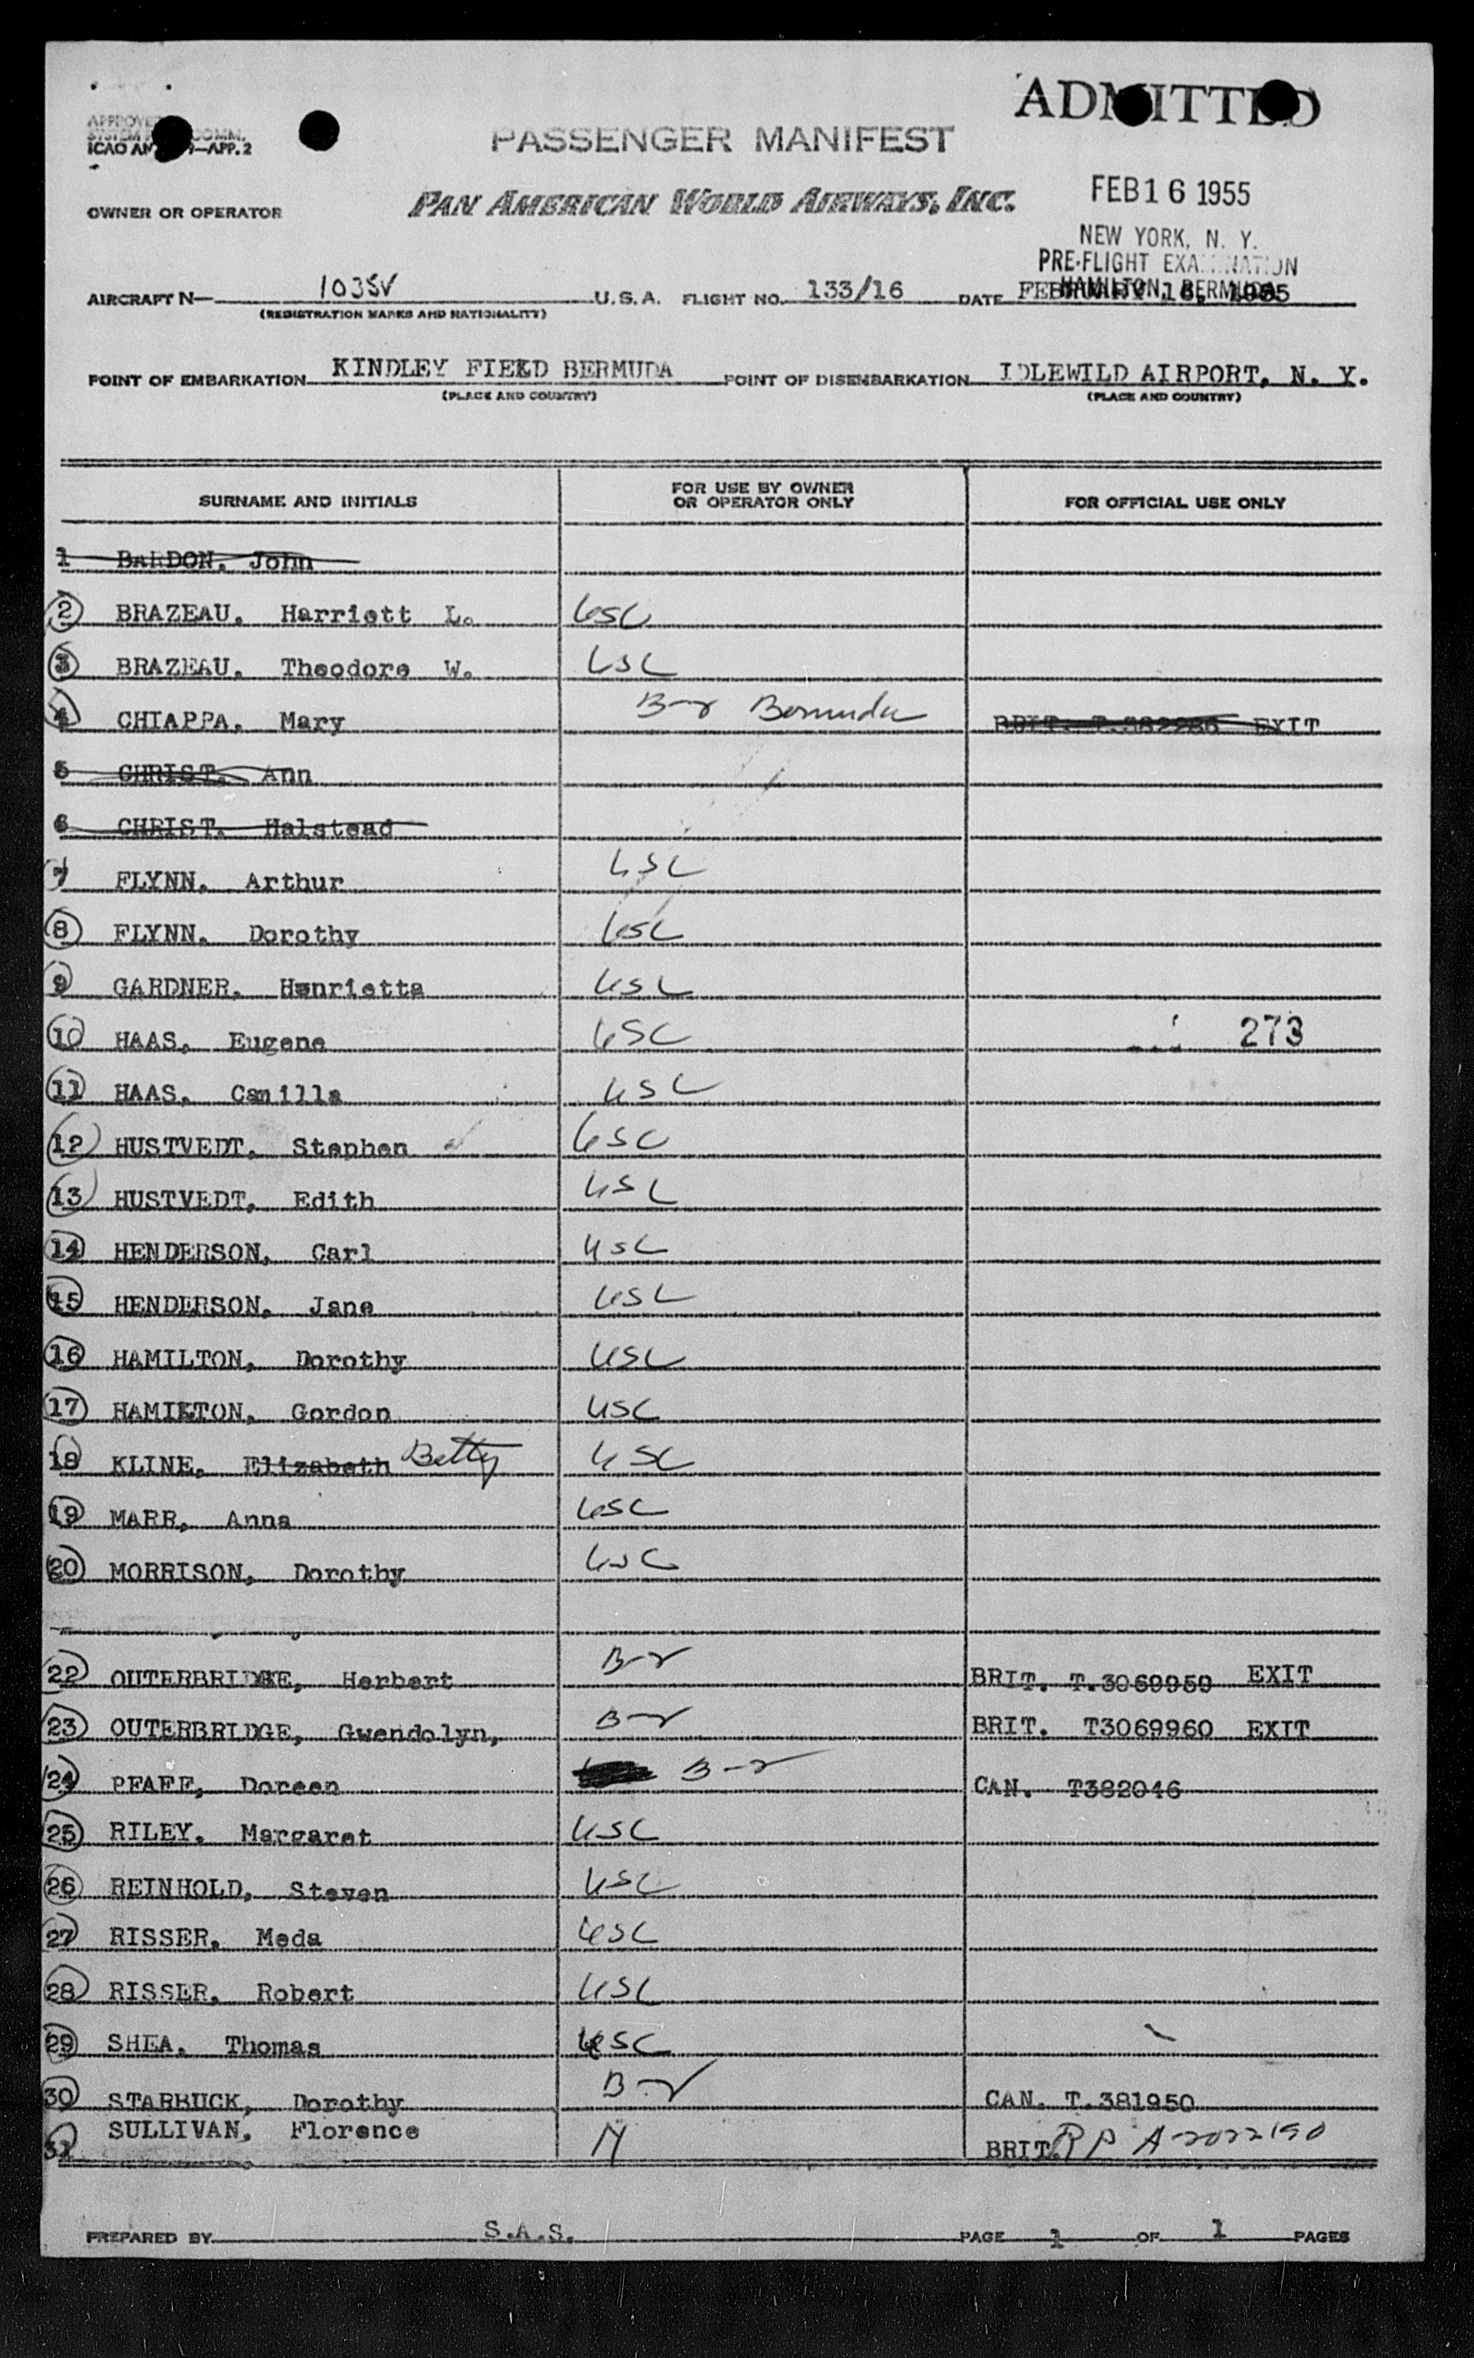 ADMITTED
APPROVED
SYSTEM COMM.
ICAO AN —APP. 2
PASSENGER MANIFEST
FEB 16 1955
OWNER OR OPERATOR PAN AMERICAN WORLD AIRWAYS, INC.
NEW YORK, N. Y.
PRE-FLIGHT EXAMINATION
HAMILTON, BERMUDA
AIRCRAFT N— 1035V U. S. A. FLIGHT NO. 133/16 DATE FEBRUARY 16, 1955
(REGISTRATION MARKS AND NATIONALITY)
POINT OF EMBARKATION KINDLEY FIELD BERMUDA POINT OF DISEMBARKATION IDLEWILD AIRPORT, N. Y.
(PLACE AND COUNTRY) (PLACE AND COUNTRY)
SURNAME AND INITIALS FOR USE BY OWNER OR OPERATOR ONLY FOR OFFICIAL USE ONLY
1 BARDON, John
2 BRAZEAU, Harriett L. USC
3 BRAZEAU, Theodore W. USC
4 CHIAPPA, Mary B-2 Bermuda BRIT. T.382286 EXIT
5 CHRIST, Ann
6 CHRIST, Halstead
7 FLYNN, Arthur USC
8 FLYNN, Dorothy USC
9 GARDNER, Henrietta USC
10 HAAS, Eugene USC 273
11 HAAS, Camilla USC
12 HUSTVEDT, Stephen USC
13 HUSTVEDT, Edith USC
14 HENDERSON, Carl USC
15 HENDERSON, Jane USC
16 HAMILTON, Dorothy USC
17 HAMILTON, Gordon USC
18 KLINE, Elizabeth Betty USC
19 MARR, Anna USC
20 MORRISON, Dorothy USC
22 OUTERBRIDGE, Herbert B-2 BRIT. T.3069959 EXIT
23 OUTERBRIDGE, Gwendolyn, B-2 BRIT. T3069960 EXIT
24 PFAFF, Doreen B-2 CAN. T382046
25 RILEY, Margaret USC
26 REINHOLD, Steven USC
27 RISSER, Meda USC
28 RISSER, Robert USC
29 SHEA, Thomas USC
30 STARBUCK, Dorothy B-2 CAN. T.381950
31 SULLIVAN, Florence M BRIT. RP A-2022190
PREPARED BY S.A.S. PAGE 1 OF 1 PAGES